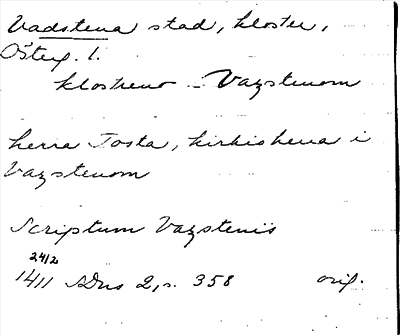 Vadstena stad, kloster,
Österg. l.
klostreno - Vazstenom
herra Tosta, kirkiohera i
Vazstenom
Scriptum Vazstenis
24/2
1411 SDns 2, s. 358 orig.